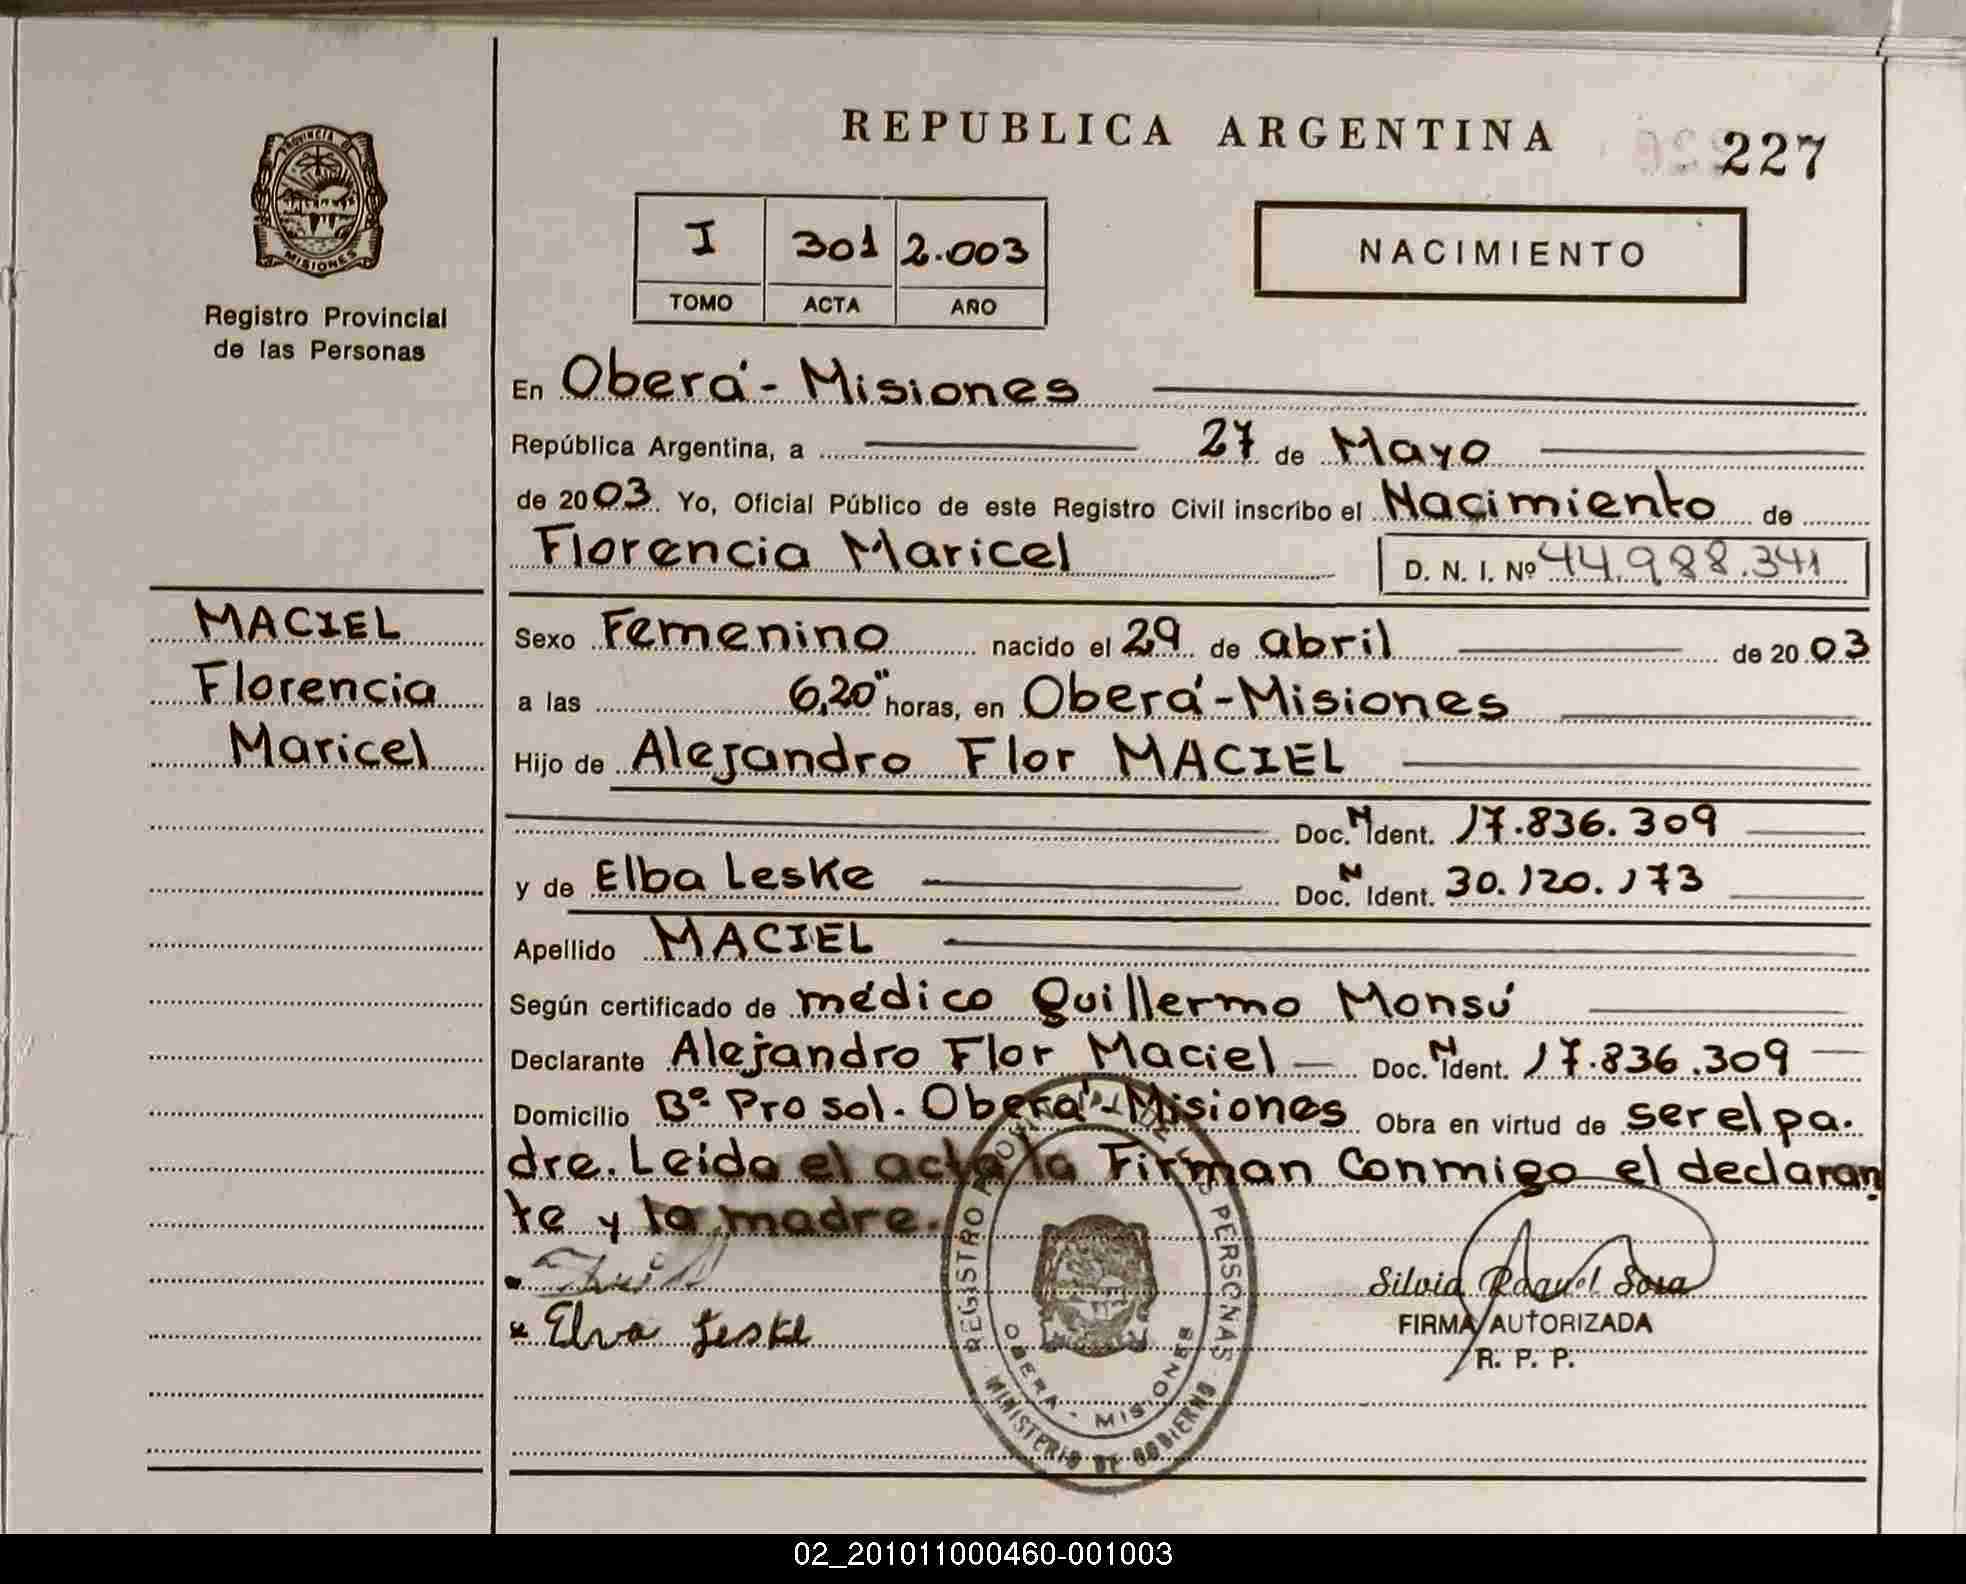 PROVINCIA D
MISIONES
Registro Provincial
de las Personas
MACIEL
Florencia
Maricel
REPUBLICA ARGENTINA
227
I 301 2.003
TOMO ACTA AÑO
NACIMIENTO
En Oberá - Misiones
República Argentina, a 27 de Mayo
de 2003 Yo, Oficial Público de este Registro Civil inscribo el Nacimiento de
Florencia Maricel D. N. I. Nº 44.988.341
Sexo Femenino nacido el 29 de abril de 2003
a las 6,20" horas, en Oberá - Misiones
Hijo de Alejandro Flor MACIEL
Doc. N Ident. 17.836.309
y de Elba Leske Doc. N Ident. 30.120.173
Apellido MACIEL
Según certificado de médico Guillermo Monsú
Declarante Alejandro Flor Maciel Doc. N Ident. 17.836.309
Domicilio Bº Pro sol. Oberá - Misiones Obra en virtud de ser el pa.
dre. Leida el acta la Firman Conmigo el declaran
te y la madre.
Elva Leske
REGISTRO PROVINCIAL DE LAS PERSONAS
OBERA - MISIONES
MINISTERIO DE GOBIERNO
Silvia Raquel Sosa
FIRMA AUTORIZADA
R. P. P.
02_201011000460-001003